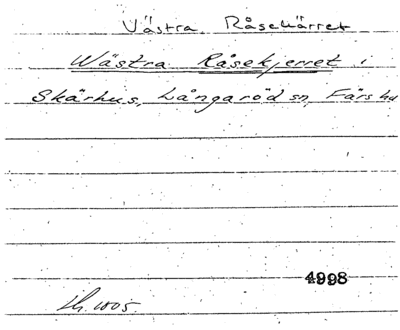 Västra Råsekärret
Wästra Råsekjerret i
Skärhus, Långaröd sn, Färs hd
4998